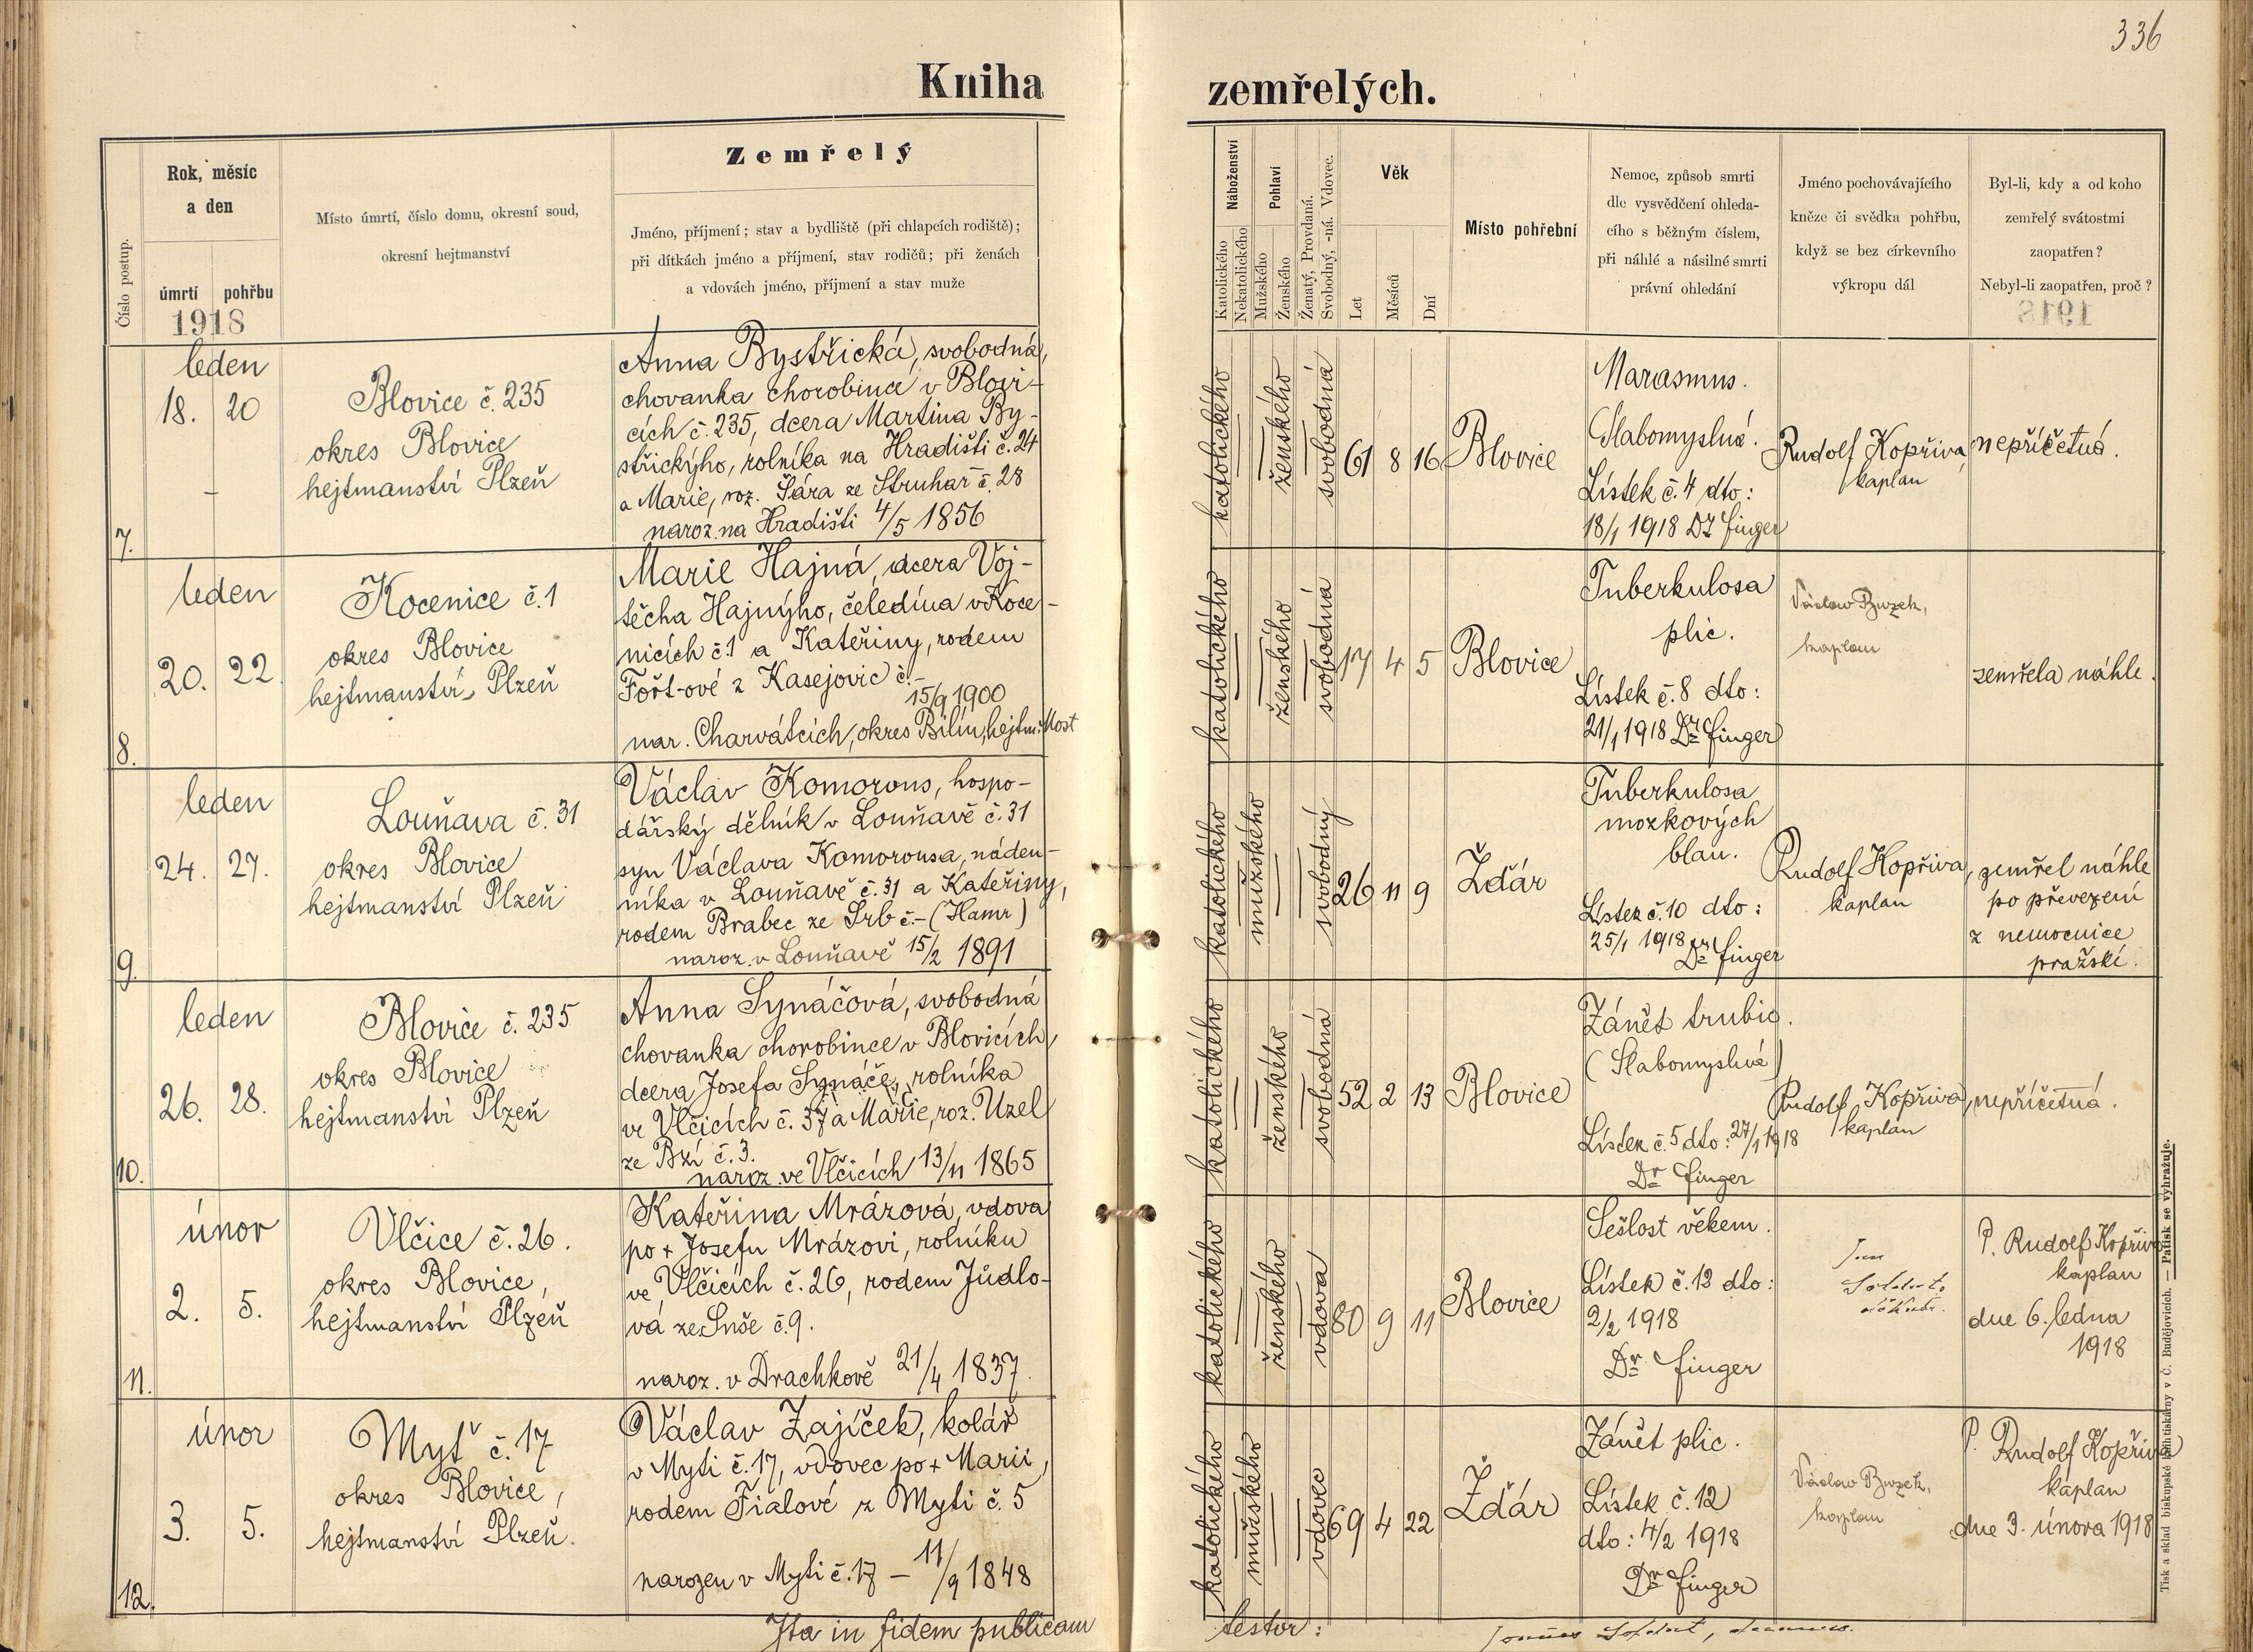 336
Kniha zemřelých.
Číslo postup.
Rok, měsíc
a den
úmrtí pohřbu
1918
Místo úmrtí, číslo domu, okresní soud,
okresní hejtmanství
Zemřelý
Jméno, příjmení; stav a bydliště (při chlapcích rodiště);
při dítkách jméno a příjmení, stav rodičů; při ženách
a vdovách jméno, příjmení a stav muže
Náboženství
Katolického
Nekatolického
Pohlaví
Mužského
Ženského
Ženatý, Provdaná.
Svobodný, -ná. Vdovec.
Věk
Let
Měsíců
Dní
Místo pohřební
Nemoc, způsob smrti
dle vysvědčení ohleda-
cího s běžným číslem,
při náhlé a násilné smrti
právní ohledání
Jméno pochovávajícího
kněze či svědka pohřbu,
když se bez církevního
výkropu dál
Byl-li, kdy a od koho
zemřelý svátostmi
zaopatřen?
Nebyl-li zaopatřen, proč?
7.
leden
18. 20
Blovice č. 235
okres Blovice
hejtmanství Plzeň
Anna Bystřická, svobodná,
chovanka chorobince v Blovi-
cích č. 235, dcera Martina By-
střickýho, rolníka na Hradišti č. 24
a Marie, roz. Šára ze Struhař č. 28
naroz. na Hradišti 4/5 1856
katolického
ženského
svobodná
61 8 16
Blovice
Marasmus.
Slabomyslná.
Lístek č. 4 dto:
18/1 1918 Dr Finger
Rudolf Kopřiva,
kaplan
nepříčetná.
8.
leden
20. 22
Kocenice č. 1
okres Blovice
hejtmanství Plzeň
Marie Hajná, dcera Voj-
těcha Hajnýho, čeledína v Koce-
nicích č. 1 a Kateřiny, rodem
Fořt-ové z Kasejovic č.-
15/9 1900
nar. Charvátcích, okres Bílín, hejtm. Most
katolického
ženského
svobodná
17 4 5
Blovice
Tuberkulosa
plic.
Lístek č. 8 dto:
21/1 1918 Dr Finger
Václav
kaplan
zemřela náhle.
9.
leden
24. 27.
Louňava č. 31
okres Blovice
hejtmanství Plzeň
Václav Komorous, hospo-
dářský dělník v Louňavě č. 31
syn Václava Komorousa, náden-
níka v Louňavě č. 31 a Kateřiny,
rodem Brabec ze Srb č.- (Hamr)
naroz. v Louňavě 15/2 1891
katolického
mužského
svobodný
26 11 9
Žďár
Tuberkulosa
mozkových
blan.
Lístek č. 10 dto:
25/1 1918
Dr Finger
Rudolf Kopřiva,
kaplan
zemřel náhle
po převezení
z nemocnice
pražské.
10.
leden
26. 28.
Blovice č. 235
okres Blovice
hejtmanství Plzeň
Anna Synáčová, svobodná
chovanka chorobince v Blovicích,
dcera Josefa Synáče, rolníka
ve Vlčicích č. 37 a Marie, roz. Uzel
ze Bzí č. 3.
naroz. ve Vlčicích 13/11 1865
katolického
ženského
svobodná
52 2 13
Blovice
Zánět trubic.
(Slabomyslná)
Lístek č. 5 dto: 27/1 1918
Dr Finger
Rudolf Kopřiva,
kaplan
nepříčetná.
11.
únor
2. 5.
Vlčice č. 26.
okres Blovice,
hejtmanství Plzeň
Kateřina Mrázová, vdova
po + Josefu Mrázovi, rolníku
ve Vlčicích č. 26, rodem Jůdlo-
vá ze Snše č. 9.
naroz. v Drachkově 21/4 1837.
katolického
ženského
vdova
80 9 11
Blovice
Sešlost věkem.
Lístek č. 13 dto:
2/2 1918
Dr Finger
Jan
Soldát,
děkan.
P. Rudolf Kopřiva
kaplan
dne 6. ledna
1918
12.
únor
3. 5.
Myť č. 17
okres Blovice,
hejtmanství Plzeň.
Václav Zajíček, kolář
v Myti č. 17, vdovec po + Marii,
rodem Fialové z Myti č. 5
narozen v Myti č. 17 – 11/9 1848
katolického
mužského
vdovec
69 4 22
Žďár
Zánět plic.
Lístek č. 12
dto: 4/2 1918
Dr Finger
Václav
kaplan
P. Rudolf Kopřiva
kaplan
dne 3. února 1918
Ita in fidem publicam testor:
Joannes Soldát, decanus.
Tisk a sklad biskupské knihtiskárny v Č. Budějovicích. — Patisk se vyhražuje.